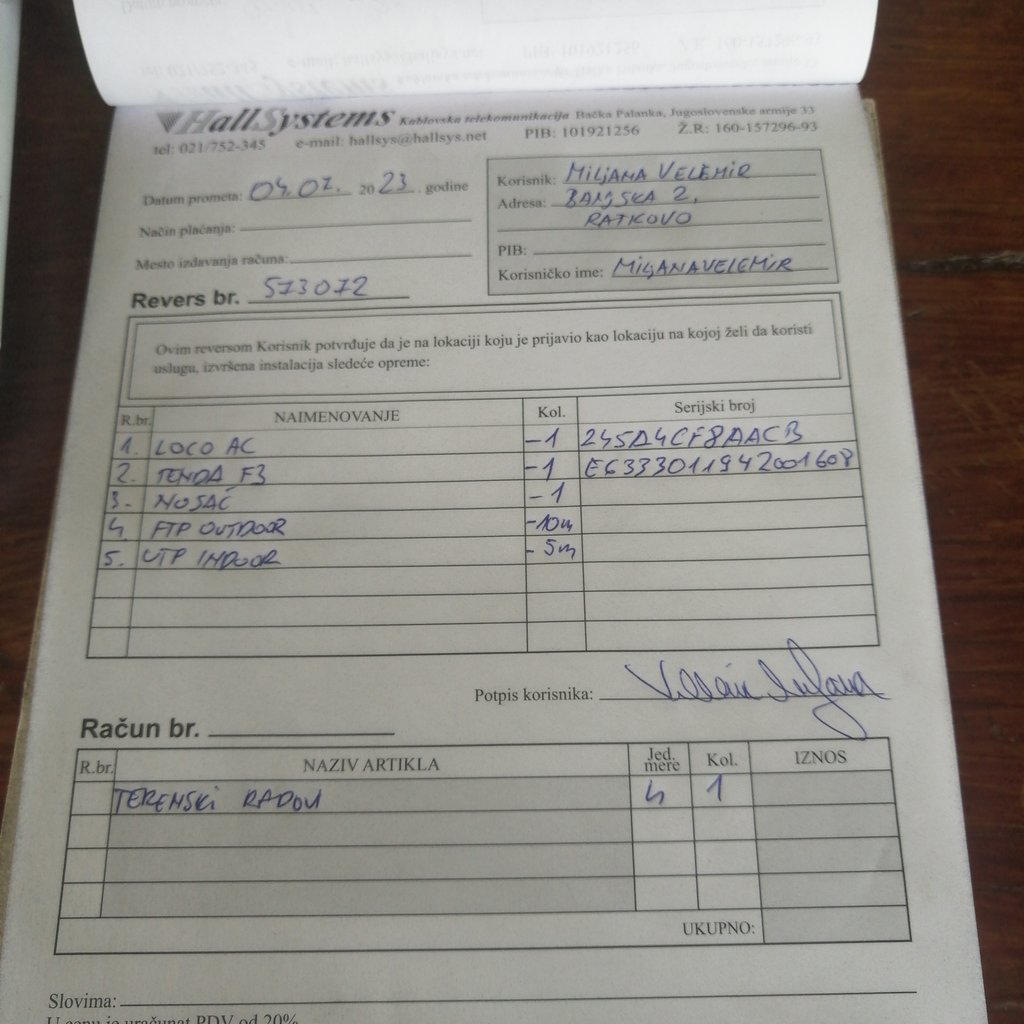 HallSystems Kablovska telekomunikacija Bačka Palanka, Jugoslovenske armije 33
tel: 021/752-345 e-mail: hallsys@hallsys.net PIB: 101921256 Ž.R: 160-157296-93
Datum prometa: 04.07. 2023. godine
Način plaćanja:
Mesto izdavanja računa:
Revers br. 573072
Korisnik: MILJANA VELEMIR
Adresa: BANJSKA 2,
RATKOVO
PIB:
Korisničko ime: MILJANAVELEMIR
Ovim reversom Korisnik potvrđuje da je na lokaciji koju je prijavio kao lokaciju na kojoj želi da koristi
uslugu, izvršena instalacija sledeće opreme:
R.br. NAIMENOVANJE Kol. Serijski broj
1. LOCO AC -1 245A4CF8AACB
2. TENDA F3 -1 E6333011942001608
3. NOSAČ -1
4. FTP OUTDOOR -10m
5. UTP INDOOR - 5m
Potpis korisnika:
Račun br.
R.br. NAZIV ARTIKLA Jed. mere Kol. IZNOS
TERENSKI RADOVI h 1
UKUPNO:
Slovima:
U cenu je uračunat PDV od 20%